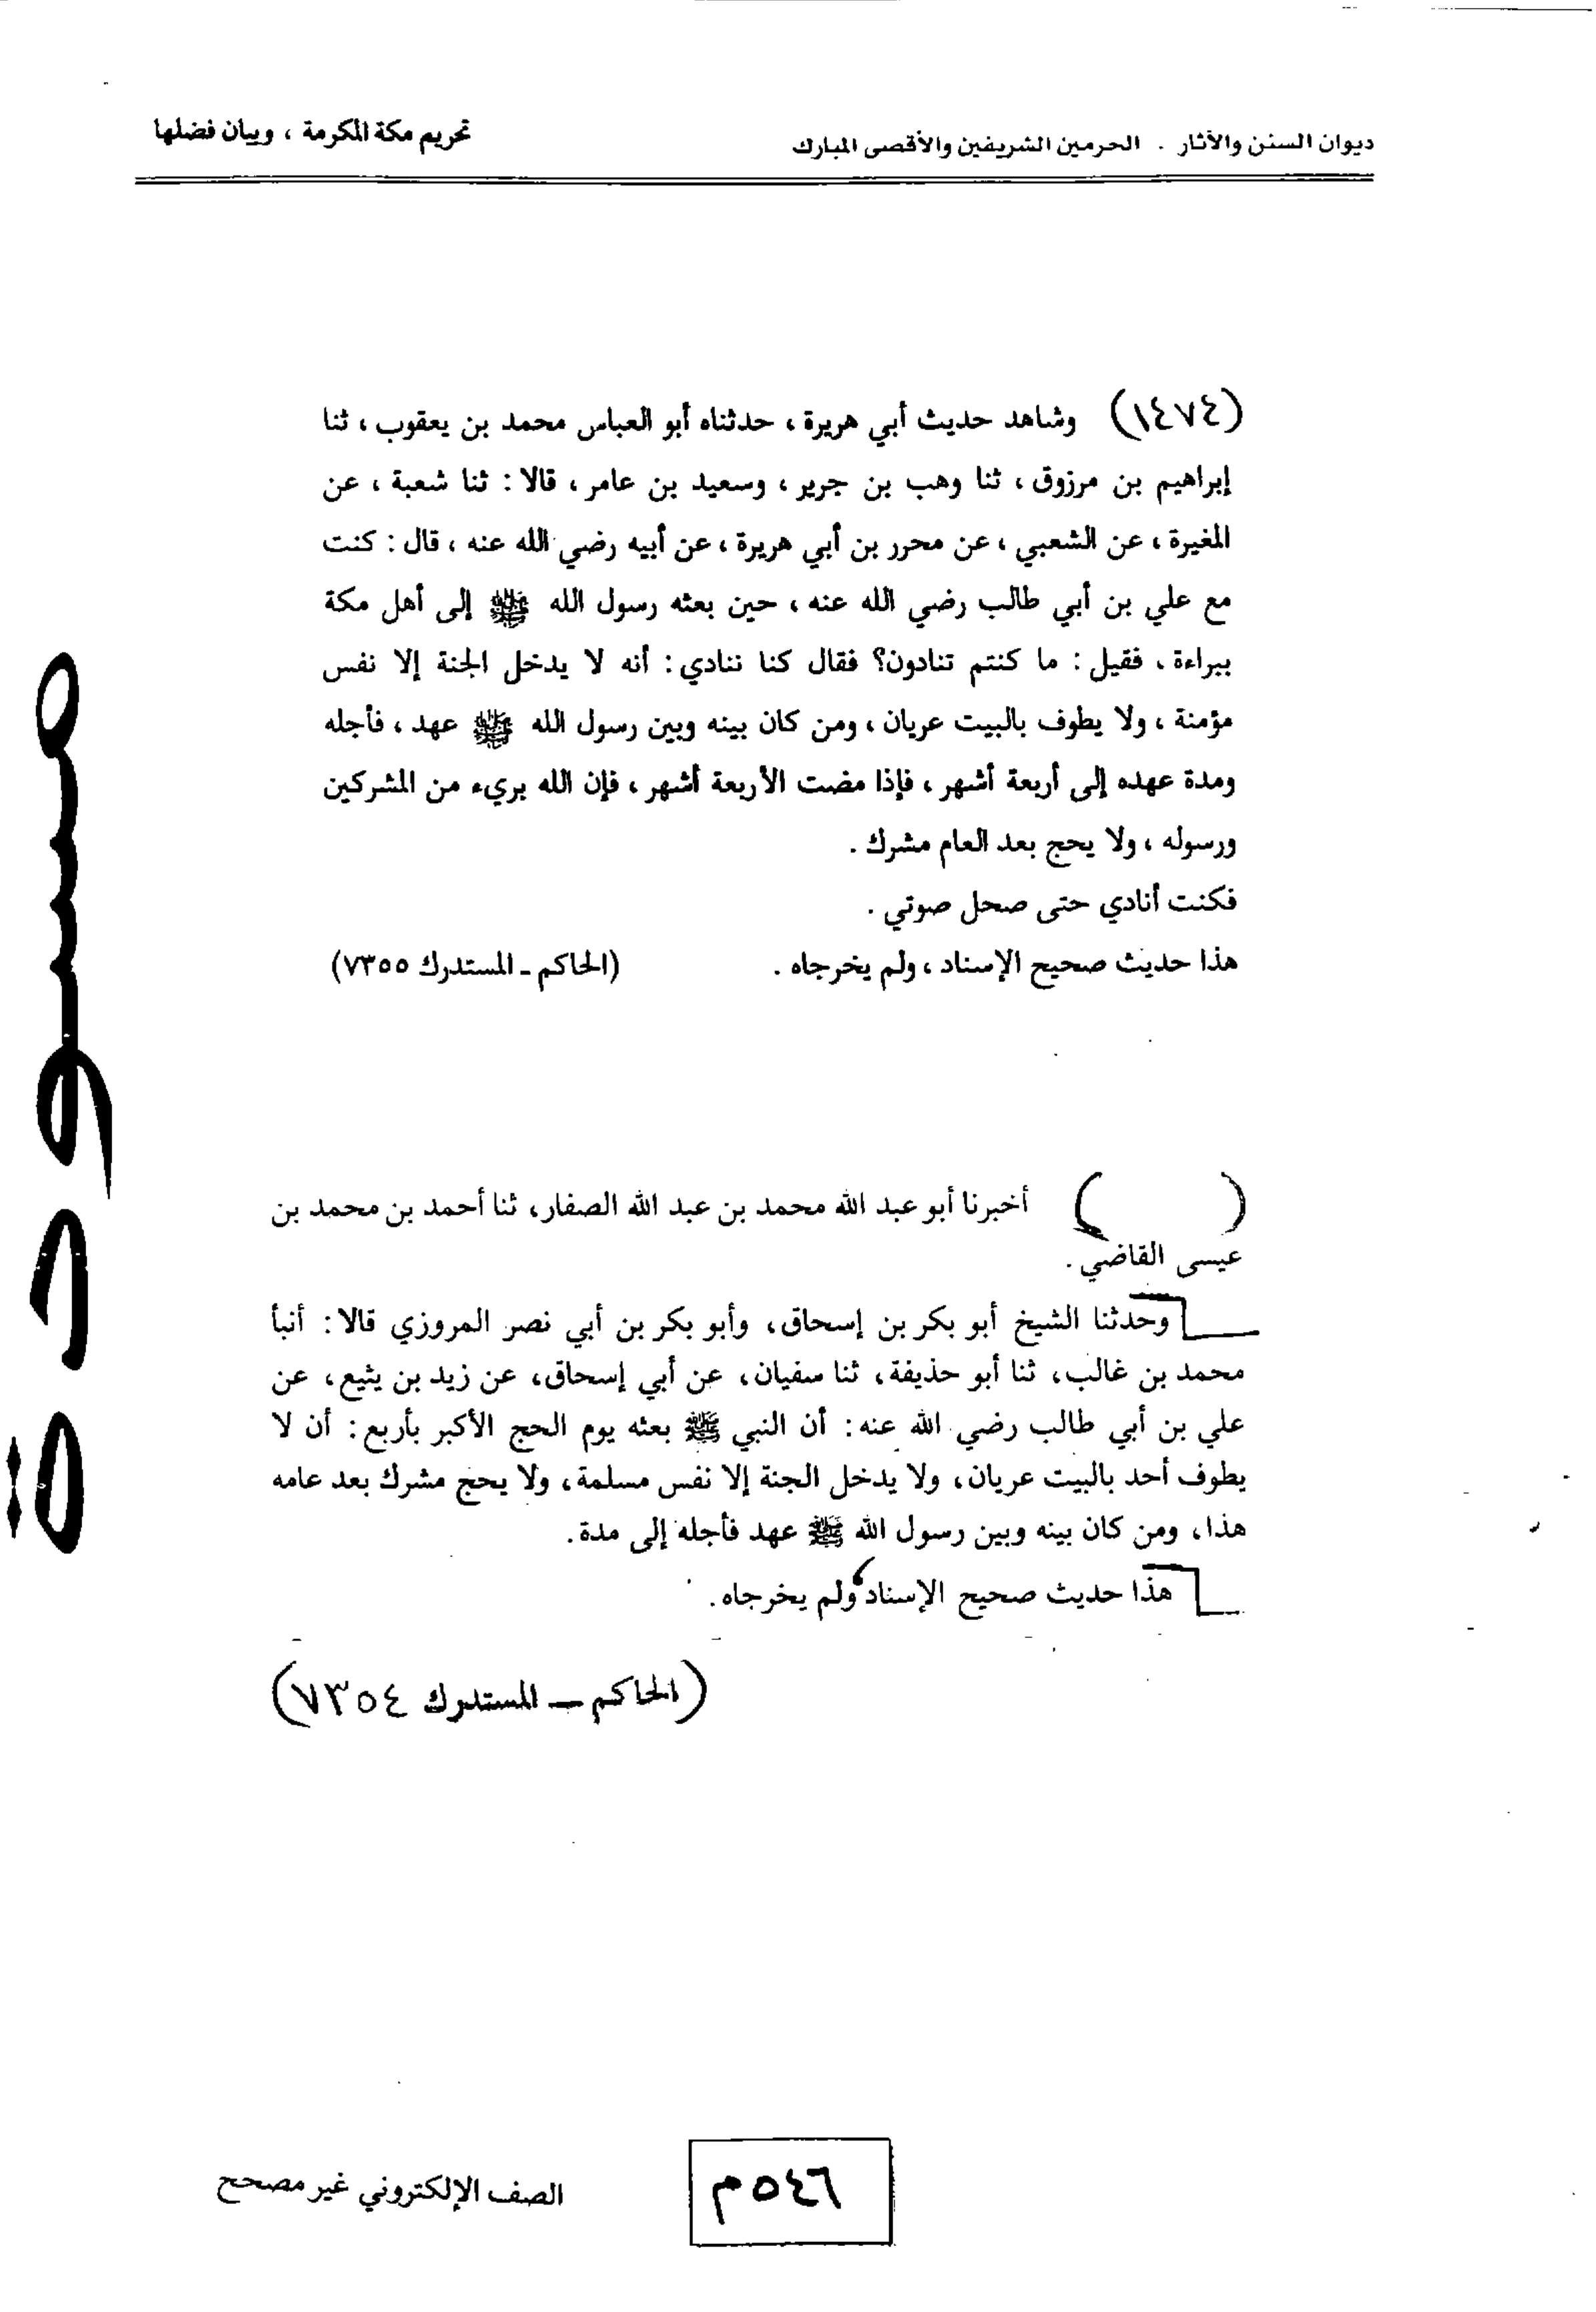 ديوان السنن والآثار . الحرمين الشريفين والأقصى المبارك
تحريم مكة المكرمة ، وبيان فضلها
(١٤٧٤) وشاهد حديث أبي هريرة ، حدثناه أبو العباس محمد بن يعقوب ، ثنا
إبراهيم بن مرزوق ، ثنا وهب بن جرير ، وسعيد بن عامر ، قالا : ثنا شعبة ، عن
المغيرة ، عن الشعبي ، عن محرر بن أبي هريرة ، عن أبيه رضي الله عنه ، قال : كنت
مع علي بن أبي طالب رضي الله عنه ، حين بعثه رسول الله ﷺ إلى أهل مكة
ببراءة ، فقيل : ما كنتم تنادون؟ فقال كنا ننادي : أنه لا يدخل الجنة إلا نفس
مؤمنة ، ولا يطوف بالبيت عريان ، ومن كان بينه وبين رسول الله ﷺ عهد ، فأجله
ومدة عهده إلى أربعة أشهر ، فإذا مضت الأربعة أشهر ، فإن الله بريء من المشركين
ورسوله ، ولا يحج بعد العام مشرك .
فكنت أنادي حتى صحل صوتي .
هذا حديث صحيح الإسناد ، ولم يخرجاه . (الحاكم - المستدرك ٧٣٥٥)
( ) أخبرنا أبو عبد الله محمد بن عبد الله الصفار، ثنا أحمد بن محمد بن
عيسى القاضي.
وحدثنا الشيخ أبو بكر بن إسحاق، وأبو بكر بن أبي نصر المروزي قالا: أنبأ
محمد بن غالب، ثنا أبو حذيفة، ثنا سفيان، عن أبي إسحاق، عن زيد بن يثيع، عن
علي بن أبي طالب رضي الله عنه: أن النبي ﷺ بعثه يوم الحج الأكبر بأربع: أن لا
يطوف أحد بالبيت عريان، ولا يدخل الجنة إلا نفس مسلمة، ولا يحج مشرك بعد عامه
هذا، ومن كان بينه وبين رسول الله ﷺ عهد فأجله إلى مدة.
هذا حديث صحيح الإسناد، ولم يخرجاه.
(الحاكم — المستدرك ٧٣٥٤)
مسودة
٥٤٦م
الصف الإلكتروني غير مصحح